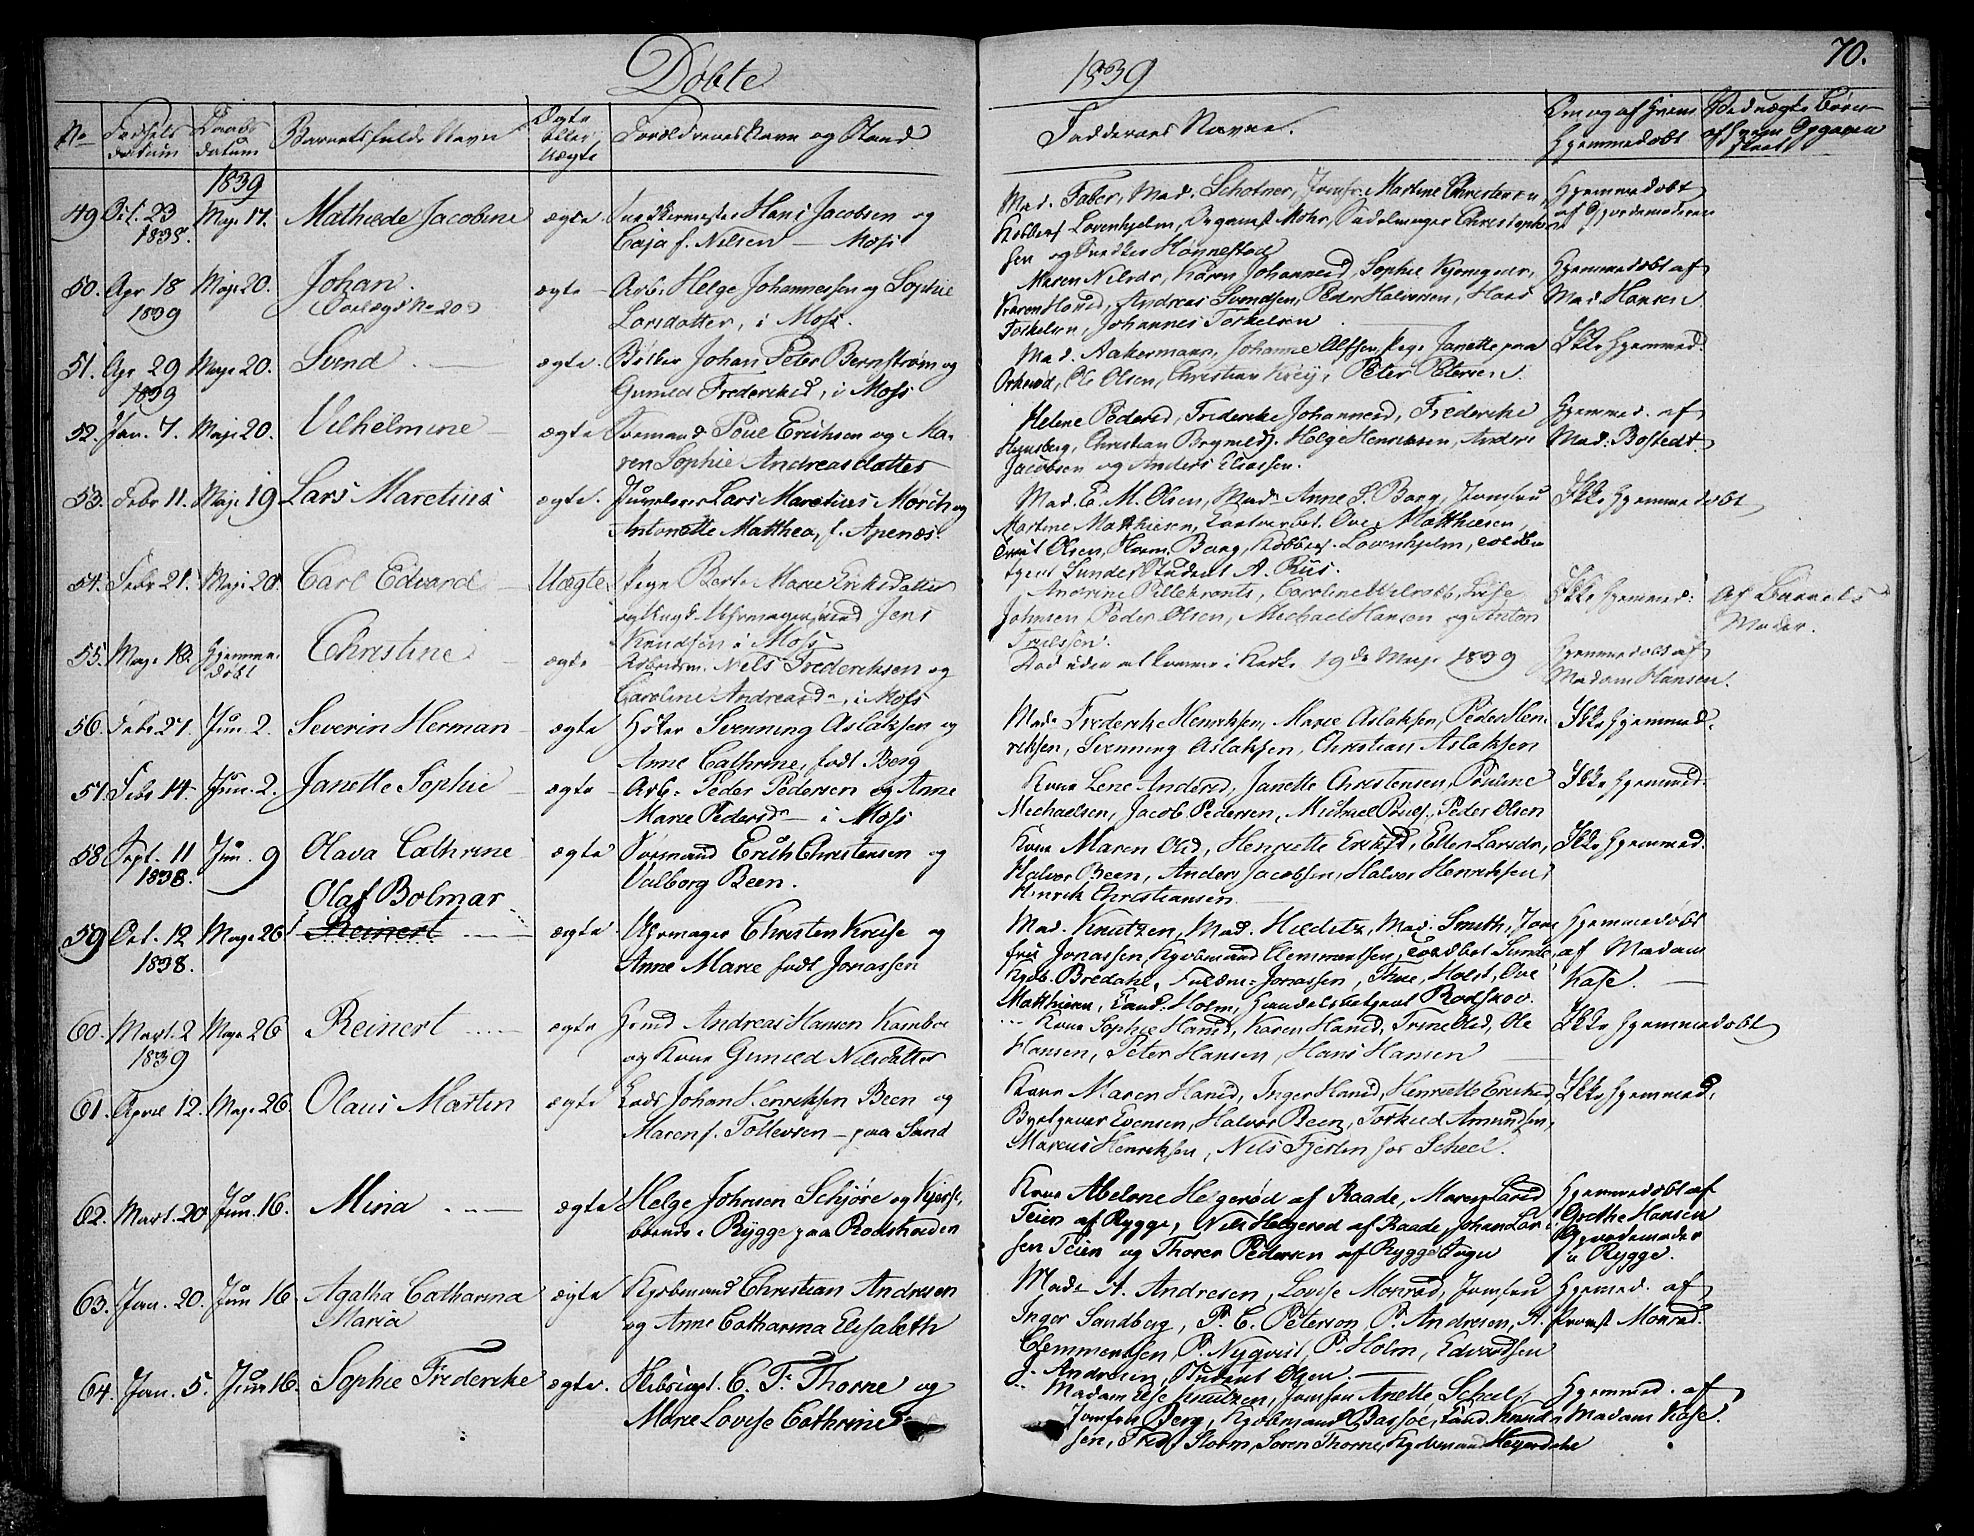 Døbte 1839 70.
No Fødsels datum Daabs datum Barnets fulde Navn Ægte eller Uægte Forældrenes Navn og Stand. Faddernes Navne. Om og af Hvem Hjemmedøbt
1839
49 23 1838. Maji 17. Mathilde Jacobine ægte Hans Jacobsen og
Caja f. Nilsen — Moss
Mad. Faber, Mad. Schotner, Jomfr. Martine Christensen,
Lovenhjelm, Organist Mohr,
sen og Hønnestad
Hjemmedøbt
af Gjordemoderen
50. Apr 18 1839 Maji 20. Johan. ægte Arb. Helge Johannessen og Sophie
Larsdatter, i Moss.
Maren Nilsdr, Karen Johannesd, Sophie
Karen Hansd, Andreas Svendsen, Peder Halvorsen, Hans
Torkelsen, Johannes Torkelsen
Hjemmedøbt af
Mad. Hansen
51. Apr 29 1839 Maji 20. Svend ægte. Johan Peter Bernstrøm og
Gunild Frederiksd, i Moss
Mad. Aakermann, Johanne Olssen, Pige Janette paa
Ole Olsen, Christian Krey, Peter Petersen.
Ikke Hjemmed.
52. Jan. 7. Maji 20. Vilhelmine ægte Poul Eriksen og Ma-
ren Sophie Andreasdatter
Helene Pedersd, Frederikke Johannesd, Frederikke
Christian Brynild. Helge Henriksen, Anders
Jacobsen og Anders Eliassen.
Hjemmed. af
Mad. Bostedt
53. Febr 11. Maji 19 Lars Maretius ægte. Juveler Lars Maretius Mörch og
Antonette Matthea, f. Apenæs.
Mad. E. M. Olsen, Mad. Anne S. Borg, Jomfru
Martine Matthiesen, Ove Matthiesen,
Olsen, Herm. Borg, Lovenhjelm,
Sunder Student A. Riis.
Ikke Hjemmedøbt
54. Febr 21. Maji 20. Carl Edvard Uægte. Pige Berte Marie Eriksdatter
og Uhrmagersvend Jens
Knudsen i Moss
Andrine Pillekrants, Caroline Lise
Johnsen Peder Olsen, Michael Hansen og Anton
Ikke Hjemmed:
Af Barnets
Moder.
55. Maji 18. Hjemme-
døbt
Christine ægte Arbeidsm. Nils Frederiksen og
Caroline Andreasd — i Moss
Død uden at komme i Kirke 19de Maji 1839
Hjemmedøbt af
Madam Hansen.
56. Febr 27. Jun. 2. Severin Herman ægte Svenning Aslaksen og
Anne Cathrine, født Berg
Mad. Frederikke Henriksen, Marie Aslaksen, Peder Hen-
riksen, Svenning Aslaksen, Christian Aslaksen
Ikke Hjemmed.
57. Febr 14. Jun. 2. Janette Sophie ægte Arb. Peder Pedersen og Anne
Marie Pedersd — i Moss
Kone Lene Andersd, Janette Christensen, Pauline
Michaelsen, Jacob Pedersen, Michael Poulf, Peder Olsen
Ikke Hjemmed.
58 Sept. 11 1838. Jun. 9 Olava Cathrine ægte Formand Erich Christensen og
Valborg Been.
Kone Maren Olsd, Henriette Eriksd, Ellen Larsdr,
Halvor Been, Anders Jacobsen, Halvor Henriksen,
Henrik Christiansen
Ikke Hjemmed.
59 Oct. 12 1838. Maji 26 Olaf Bolmar
Reinert ægte Uhrmager Christen Kruse og
Anne Marie født Jonassen
Mad. Knutzen, Mad. Hilditz, Mad. Smith, Jom-
fru Jonassen, Kjøbmand Clemmentsen,
Kjøb. Bredahl, Jonassen, Thue, Holst, Ove
Matthiesen, Cand. Holm, Handelsbetjent Rodskov.
Hjemmedøbt
af Madam
Kase.
60. Mart. 2 1839 Maji 26 Reinert ægte Andreas Hansen Kambo
og Kone Gunild Nilsdatter
Kone Sophie Hansd, Karen Hansd, Trine Olsd, Ole
Hansen, Peter Hansen, Hans Hansen
Ikke Hjemmedøbt
61. April 12. Maji 26 Olaus Martin ægte Lods Johan Henriksen Been og
Maren f. Tollevsen — paa Sand
Kone Maren Hansd, Inger Hansd, Henriette Eriksd,
Evensen, Halvor Been, Torkild Amundsen,
Marcus Henriksen, Nils
Ikke Hjemmed.
62. Mart. 20 Jun. 16. Mina ægte Helge Johnsen Schjøre og
i Rygge paa
Kone Abelone Helgerød af Raade, Maren Larsd
Teien af Rygge, Nils Helgerød af Raade, Johan Lar-
sen Teien og Thoren Pedersen af Rygge Sogn
Hjemmedøbt af
Grethe Hansen
Gjordemoder
i Rygge.
63. Jan. 20. Jun 16. Agatha Catharina
Maria
ægte Kjøbmand Christian Andresen
og Anne Catharina Elisabeth
Mad. A. Andresen, Lovise Monrad, Jomfru
Inger Sandberg, P. C. Peterson, P. Andresen, A.
Clemmentsen, P. Nyqvist, P. Holm, Edvardsen
J. Andresen, Student Olsen.
Hjemmed. af
Provst Monrad.
64. Jan. 5. Jun 16. Sophie Frederike ægte. Skibscapt. C. F. Thorne og
Marie Lovise Cathrine
Madam Else Knutzen, Jomfru Anette Scheel,
Jomfru Berg, Kjøbmand Bassøe, Cand. Knud-
sen, Fred. Storm, Søren Thorne, Kjøbmand Heyerdahl
Hjemmed. af
Madam Kase.